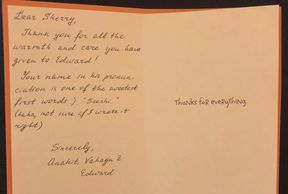 Dear Sherry,
Thank you for all the
warmth and care you have
given to Edward!
Your name in his pronun-
ciation is one of the sweetest
first words :)
(haha, not sure if I wrote it
right)
Sincerely,
Anahit, Vahagn &
Edward
Thanks for everything.